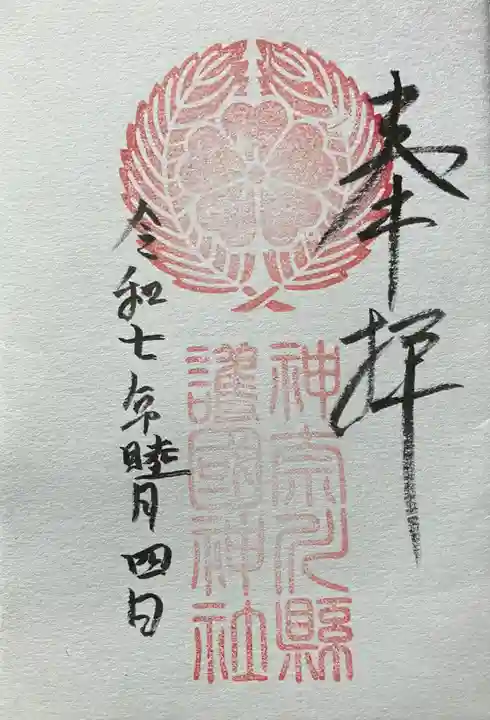 奉拝
神奈川縣
護國神社
令和七年睦月四日